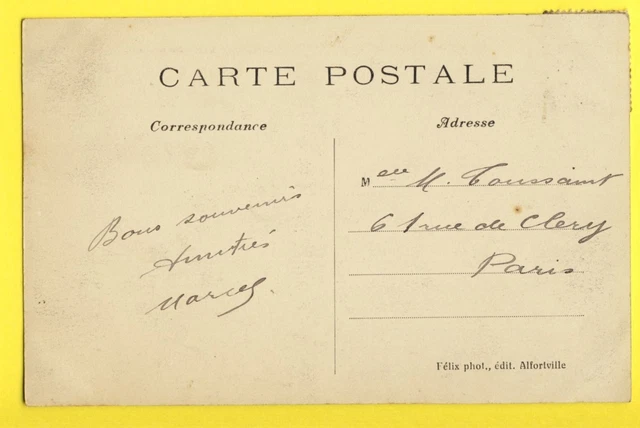 CARTE POSTALE
Correspondance
Adresse
Bons souvenirs
Amitiés
Marcel.
Melle M. Toussaint
61 rue de Clery
Paris
Félix phot., édit. Alfortville